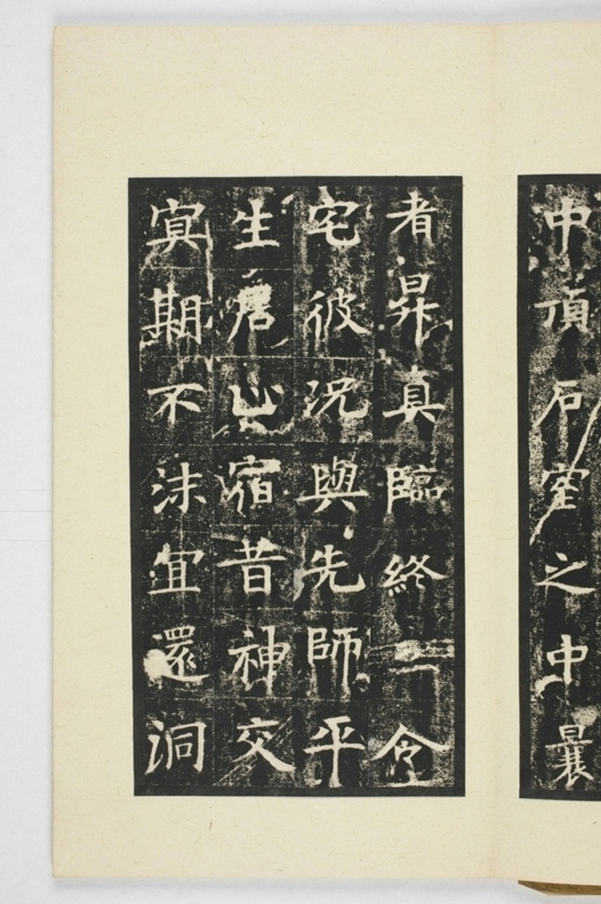 中頂石室之中曩
者昇真臨終令
宅彼況與先師平
生居止宿昔神交
冥期不沬宜還洞